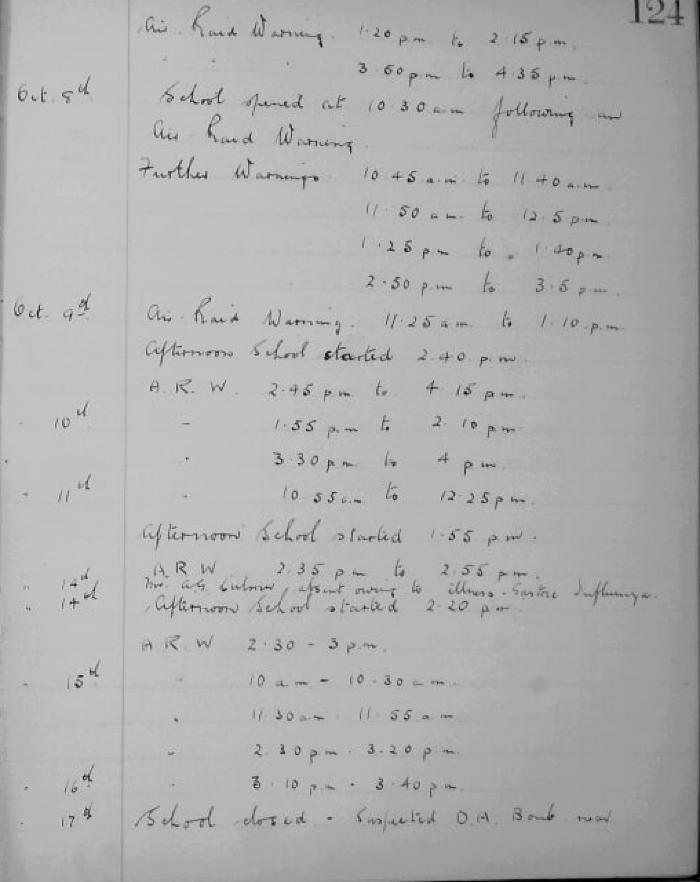 124
Air Raid Warning. 1.20 p.m. to 2.15 p.m.
" " " 3.50 p.m. to 4.35 p.m.
Oct. 8th School opened at 10.30 a.m. following an
Air Raid Warning.
Further Warnings 10.45 a.m. to 11.40 a.m.
11.50 a.m. to 12.5 p.m.
1.25 p.m. to 1.40 p.m.
2.50 p.m. to 3.5 p.m.
Oct. 9th Air Raid Warning. 11.25 a.m. to 1.10 p.m.
Afternoon School started 2.40 p.m.
A. R. W. 2.45 p.m. to 4.15 p.m.
" 10th " 1.55 p.m. to 2.10 p.m.
" 3.30 p.m. to 4 p.m.
" 11th " 10.55 a.m. to 12.25 p.m.
Afternoon School started 1.55 p.m.
A R W 2.35 p.m. to 2.55 p.m.
" 14th absent owing to illness. Gastric Influenza.
" 14th Afternoon School started 2.20 p.m.
A R W 2.30 - 3 p.m.
" 15th " 10 a.m. - 10.30 a.m.
" 11.30 a.m. - 11.55 a.m.
" 2.30 p.m. - 3.20 p.m.
" 16th " 3.10 p.m. - 3.40 p.m.
" 17th School closed - Suspected D.A. Bomb near